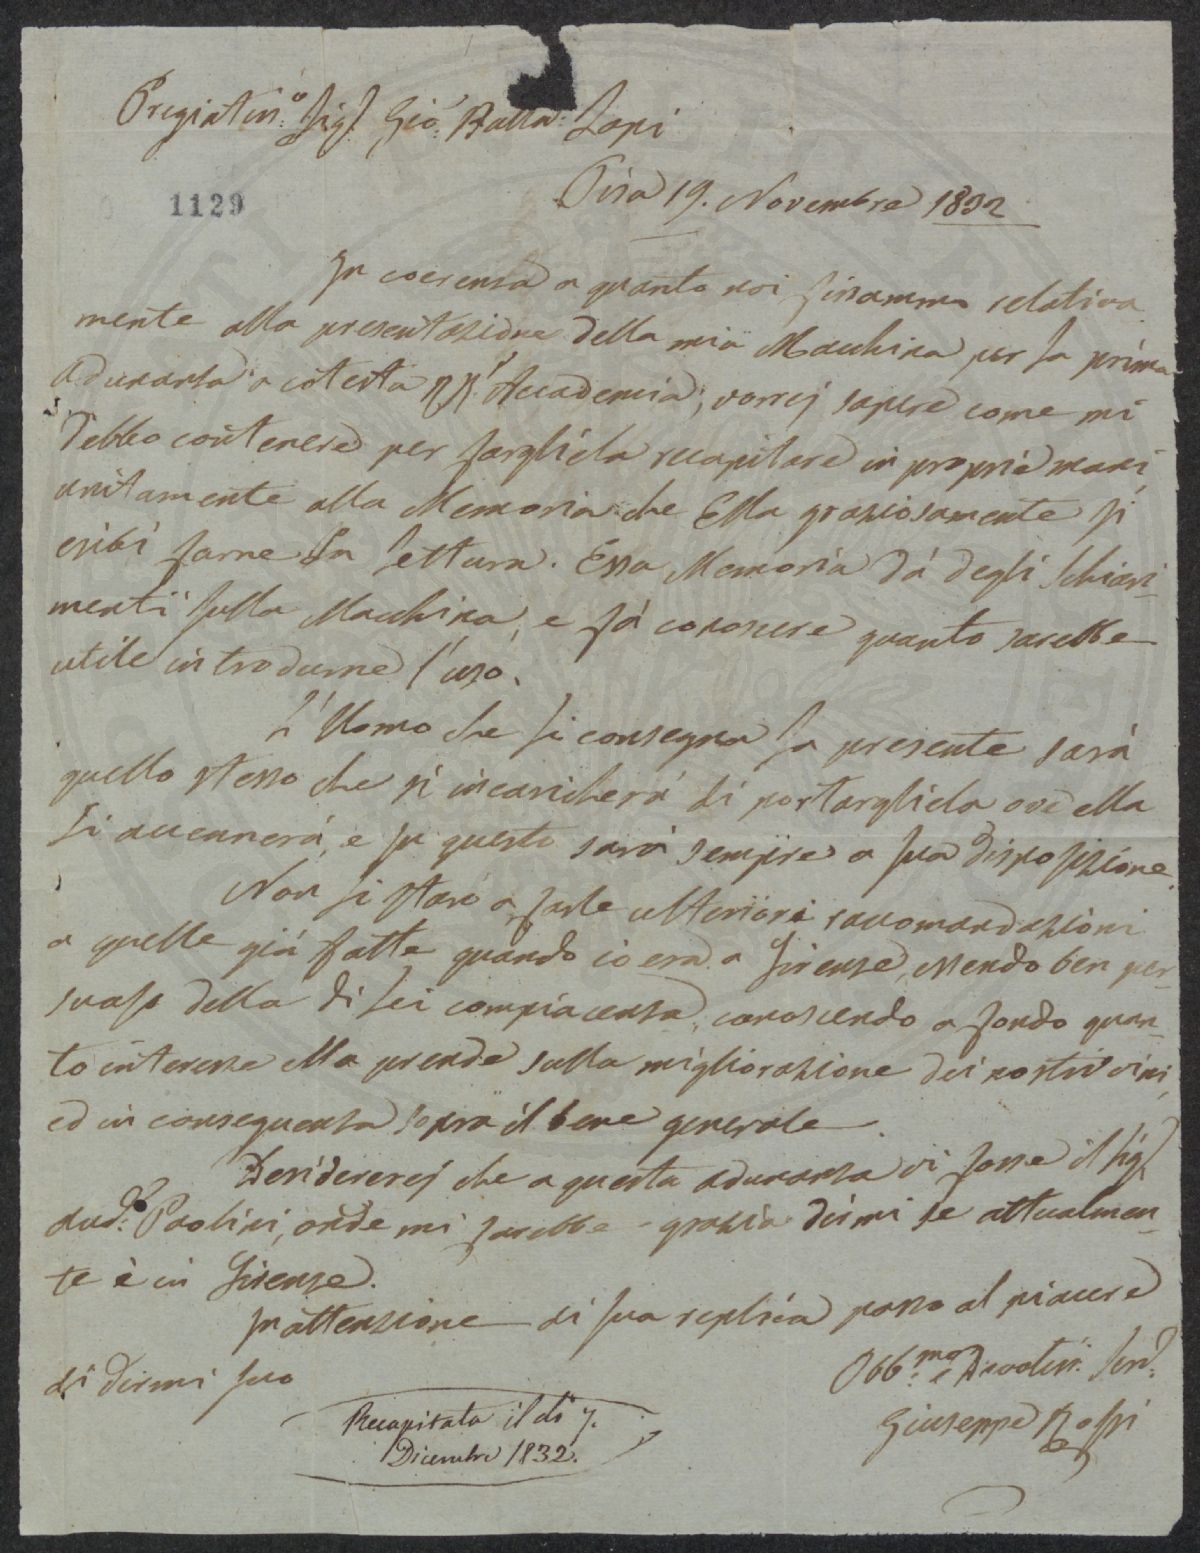 Pregiatis.º Sigʳ. Gio: Batta: Lapi
Pisa 19. Novembre 1832
1129
In coerenza a quanto noi fissammo relativa
mente alla presentazione della mia Macchina per la prima
adunanza a cotesta Accademia, vorrej sapere come mi
debbo contenere per fargliela recapitare in proprie mani,
unitamente alla Memoria che Ella graziosamente si
esibì farne la lettura. Essa Memoria dà degli schiari-
menti sulla Macchina, e fà conoscere quanto sarebbe
utile introdurne l'uso.
L'Uomo che Li consegna la presente sarà
quello stesso che si incaricherà di portargliela ove ella
Li accennerà, e per questo sarà sempre a sua disposizione.
Non Li starò a farle ulteriori raccomandazioni
a quelle già fatte quando io era a Firenze, essendo ben per-
suaso della di Lei compiacenza, conoscendo a fondo quan-
to interesse ella prende sulla migliorazione dei nostri vini,
ed in conseguenza sopra il bene generale.
Desidererej che a questa adunanza vi fosse il Sigʳ
Paolini, onde mi sarebbe grazia dirmi se attualmen-
te è in Firenze.
In attenzione di sua replica passo al piacere
di dirmi suo
Obb.mo e Devotis. Serv.
Giuseppe Rossi
Recapitata il dì 7.
Dicembre 1832.